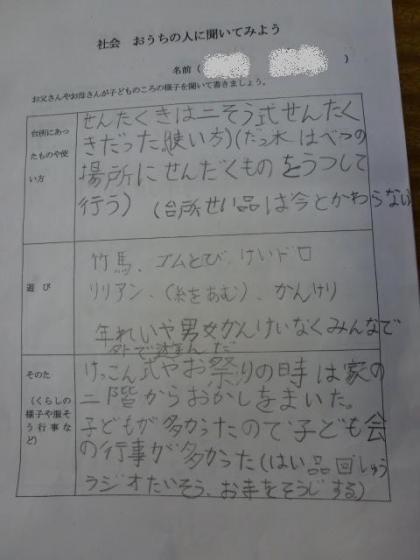 社会　おうちの人に聞いてみよう
名前（　　　　）
お父さんやお母さんが子どものころの様子を聞いて書きましょう。
台所にあっ
たものや使
い方
せんたくきは二そう式せんたく
きだった（使い方）（だっ水はべつの
場所にせんだくものをうつして
行う）（台所せい品は今とかわらない
遊び
竹馬、ゴムとび、けいドロ
リリアン、（糸をあむ）、かんけり
年れいや男女かんけいなくみんなで
外で遊んだ
そのた
（くらしの
様子や服そ
う行事な
ど）
けっこん式やお祭りの時は家の
二階からおかしをまいた。
子どもが多かったので子ども会
の行事が多かった（はい品回しゅう
ラジオたいそう、お寺をそうじする）